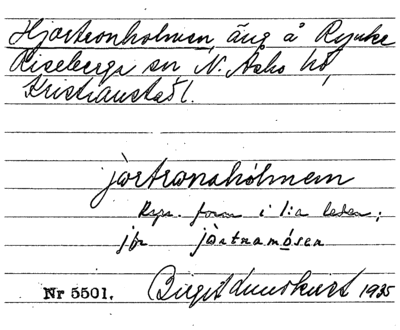 Hjortronholmen, äng å Rynke
Riseberga sn N. Åsbo hd,
Kristianstad l.
jòrtronahólmen
form i 1:a leden;
jfr jòrtnamósen
Nr 5501. Birgit 1935